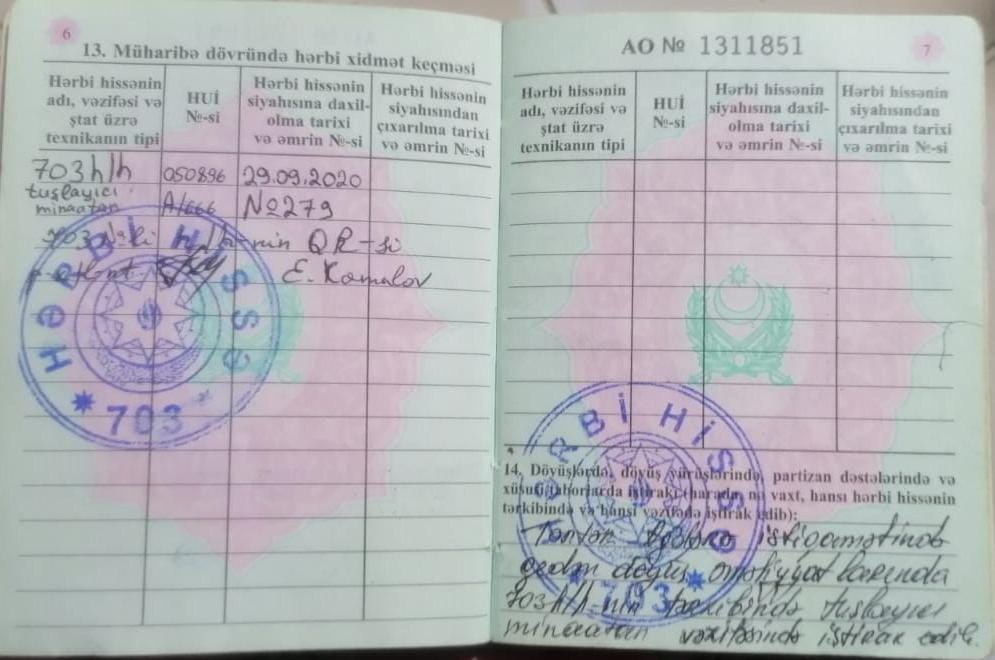 6
13. Müharibə dövründə hərbi xidmət keçməsi
Hərbi hissənin
adı, vəzifəsi və
ştat üzrə
texnikanın tipi
HUİ
№-si
Hərbi hissənin
siyahısına daxil-
olma tarixi
və əmrin №-si
Hərbi hissənin
siyahısından
çıxarılma tarixi
və əmrin №-si
703 h/h 050896 29.09.2020
tuşlayıcı
minaatan A/666 №279
703 h-nin QR-si
E. Kamalov
HƏRBİ HİSSƏ
* 703 *
AO № 1311851
7
Hərbi hissənin
adı, vəzifəsi və
ştat üzrə
texnikanın tipi
HUİ
№-si
Hərbi hissənin
siyahısına daxil-
olma tarixi
və əmrin №-si
Hərbi hissənin
siyahısından
çıxarılma tarixi
və əmrin №-si
14. Döyüşlərdə, döyüş yürüşlərində, partizan dəstələrində və
xüsusi taborlarda iştirakı (harada, nə vaxt, hansı hərbi hissənin
tərkibində və hansı vəzifədə iştirak edib):
istiqamətində
gedən döyüş əməliyyatlarında
703 h/h-nin tərkibində tuşlayıcı
minaatan vəzifəsində iştirak edib.
HƏRBİ HİSSƏ
* 703 *